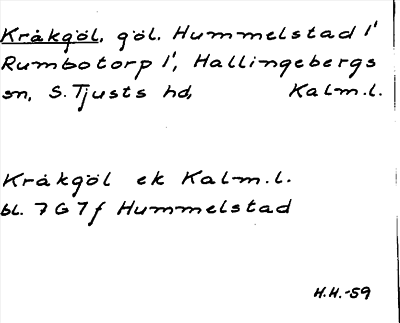 Kråkgöl, göl. Hummelstad 1'
Rumbotorp 1', Hallingebergs
sn, S. Tjusts hd, Kalm.l.
Kråkgöl ek Kalm.l.
bl. 7G7f Hummelstad
H.H.-59